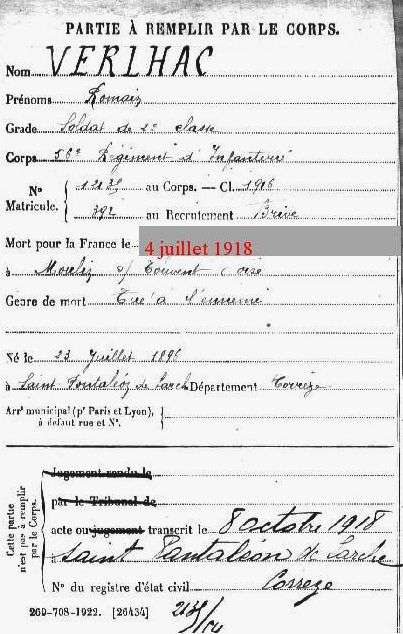 PARTIE À REMPLIR PAR LE CORPS.
Nom VERLHAC
Prénoms Romain
Grade Soldat de 2e classe
Corps 56e Régiment d'Infanterie
No Matricule. { au Corps. — Cl. 1916
392 au Recrutement Brive
Mort pour la France le 4 juillet 1918
à Moulin s/ Touvent Oise
Genre de mort Tué à l'ennemi
Né le 23 Juillet 1896
à Saint Pantaléon de Larche Département Corrèze
Arrt municipal (pr Paris et Lyon), à défaut rue et No.
Cette partie n'est pas à remplir par le Corps.
Jugement rendu le
par le Tribunal de
acte ou jugement transcrit le 8 octobre 1918
Saint Pantaléon de Larche
Corrèze
No du registre d'état civil
269-708-1922. [26434]